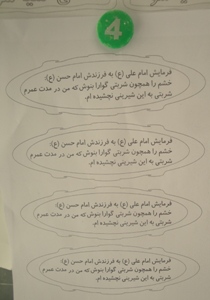 4
فرمایش امام علی (ع) به فرزندش امام حسن (ع):
خشم را همچون شربتی گوارا بنوش که من در مدت عمرم
شربتی به این شیرینی نچشیده ام.
فرمایش امام علی (ع) به فرزندش امام حسن (ع):
خشم را همچون شربتی گوارا بنوش که من در مدت عمرم
شربتی به این شیرینی نچشیده ام.
فرمایش امام علی (ع) به فرزندش امام حسن (ع):
خشم را همچون شربتی گوارا بنوش که من در مدت عمرم
شربتی به این شیرینی نچشیده ام.
فرمایش امام علی (ع) به فرزندش امام حسن (ع):
خشم را همچون شربتی گوارا بنوش که من در مدت عمرم
شربتی به این شیرینی نچشیده ام.